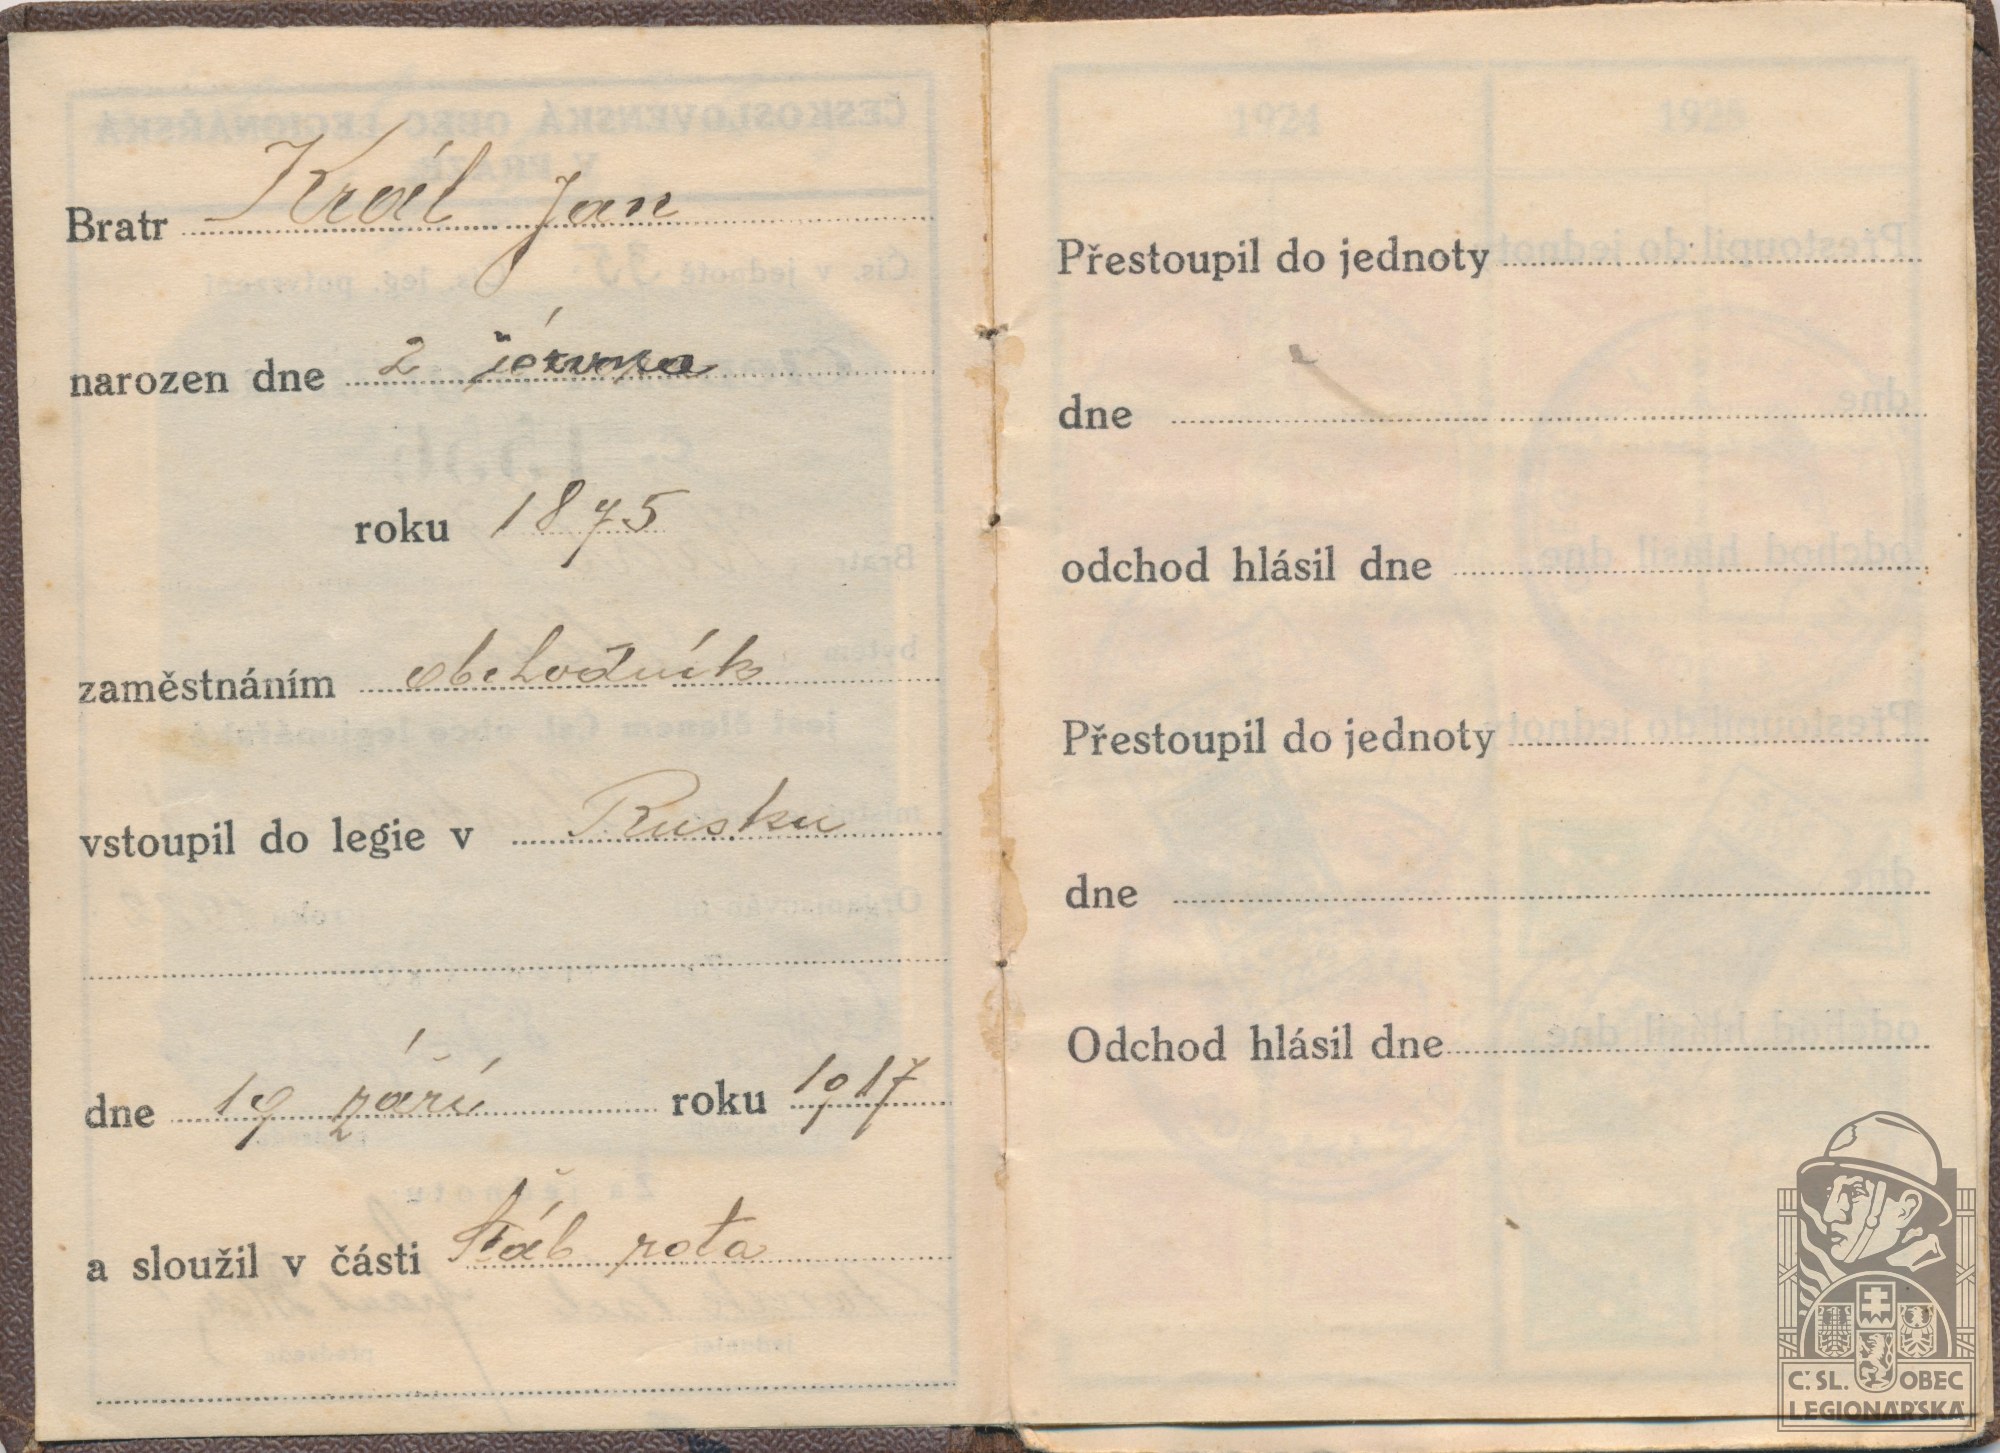 Bratr Král Jan
narozen dne 2
roku 1875
zaměstnáním obchodník
vstoupil do legie v Rusku
dne 19 září roku 1917
a sloužil v části Štáb rota
Přestoupil do jednoty
dne
odchod hlásil dne
Přestoupil do jednoty
dne
Odchod hlásil dne
Č. SL. OBEC
LEGIONÁŘSKÁ